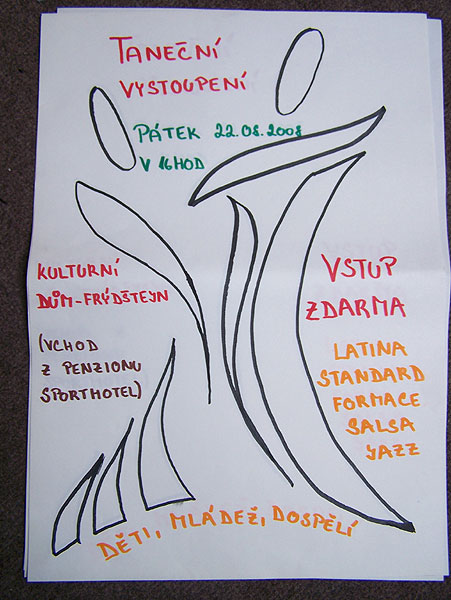 TANEČNÍ
VYSTOUPENÍ
PÁTEK 22.08.2008
V 16HOD
KULTURNÍ
DŮM-FRÝDŠTEJN
(VCHOD
Z PENZIONU
SPORTHOTEL)
VSTUP
ZDARMA
LATINA
STANDARD
FORMACE
SALSA
YAZZ
DĚTI, MLÁDEŽ, DOSPĚLÍ